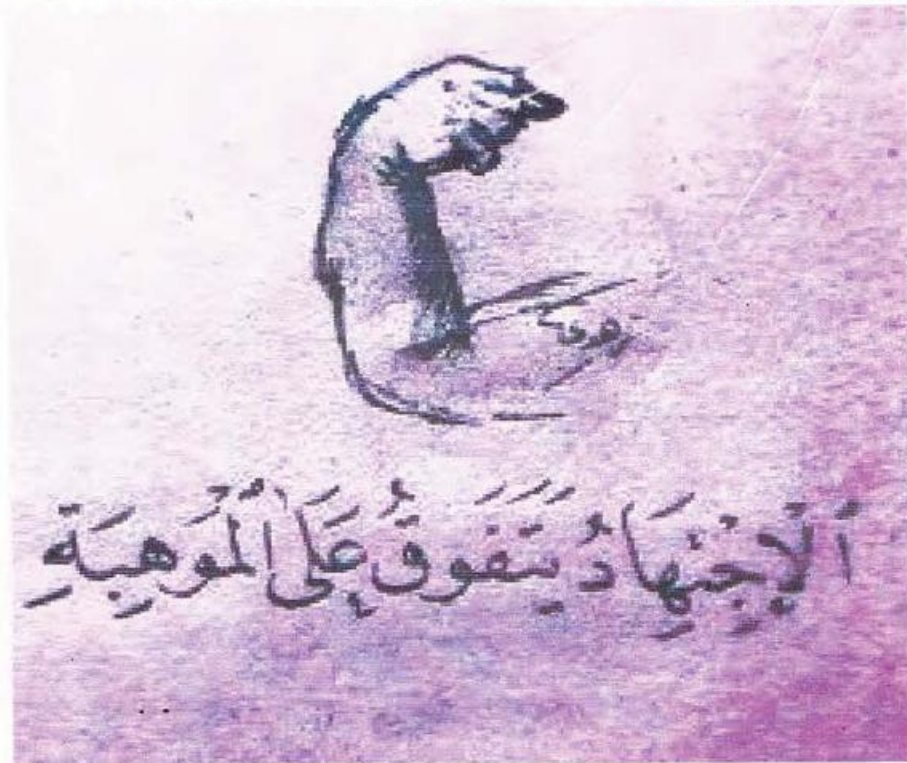 اَلْإِجْتِهَادُ يَتَفَوَقُ عَلَى الْمَوْهِبَةِ